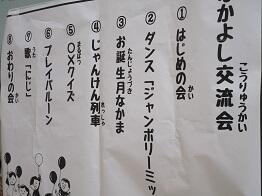 なかよし交流会
こうりゅうかい
①はじめの会
かい
②ダンス「ジャンボリーミッ
③お誕生月なかま
たんじょうづき
④じゃんけん列車
れっしゃ
⑤○×クイズ
まるばつ
⑥プレイバルーン
⑦歌「にじ
うた
⑧おわりの会
かい